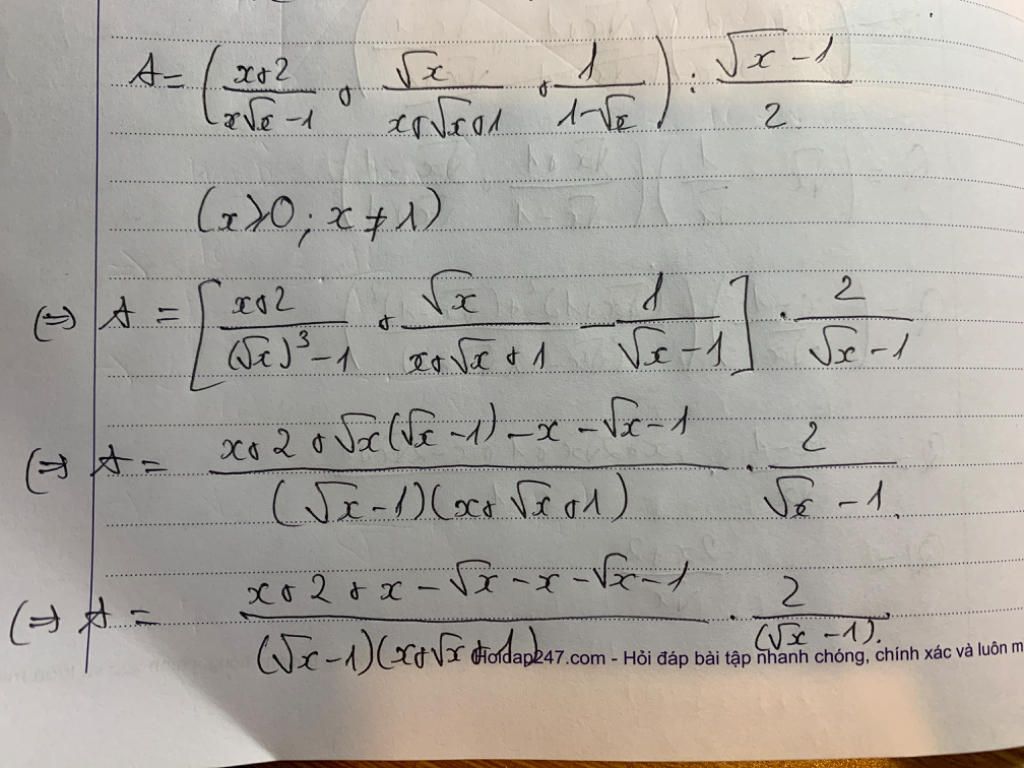 A = ( (x+2)/(x√x -1) + √x/(x+√x+1) + 1/(1-√x) ) : (√x -1)/2
(x>0; x ≠ 1)
(=) A = [ (x+2)/((√x)³-1) + √x/(x+√x+1) - 1/(√x -1) ] . 2/(√x -1)
(=) A = (x+2+√x(√x -1) -x -√x -1)/((√x -1)(x+√x+1)) . 2/(√x -1)
(=) A = (x+2+x -√x -x -√x -1)/((√x -1)(x+√x+1)) . 2/(√x -1).
Hoidap247.com - Hỏi đáp bài tập nhanh chóng, chính xác và luôn m